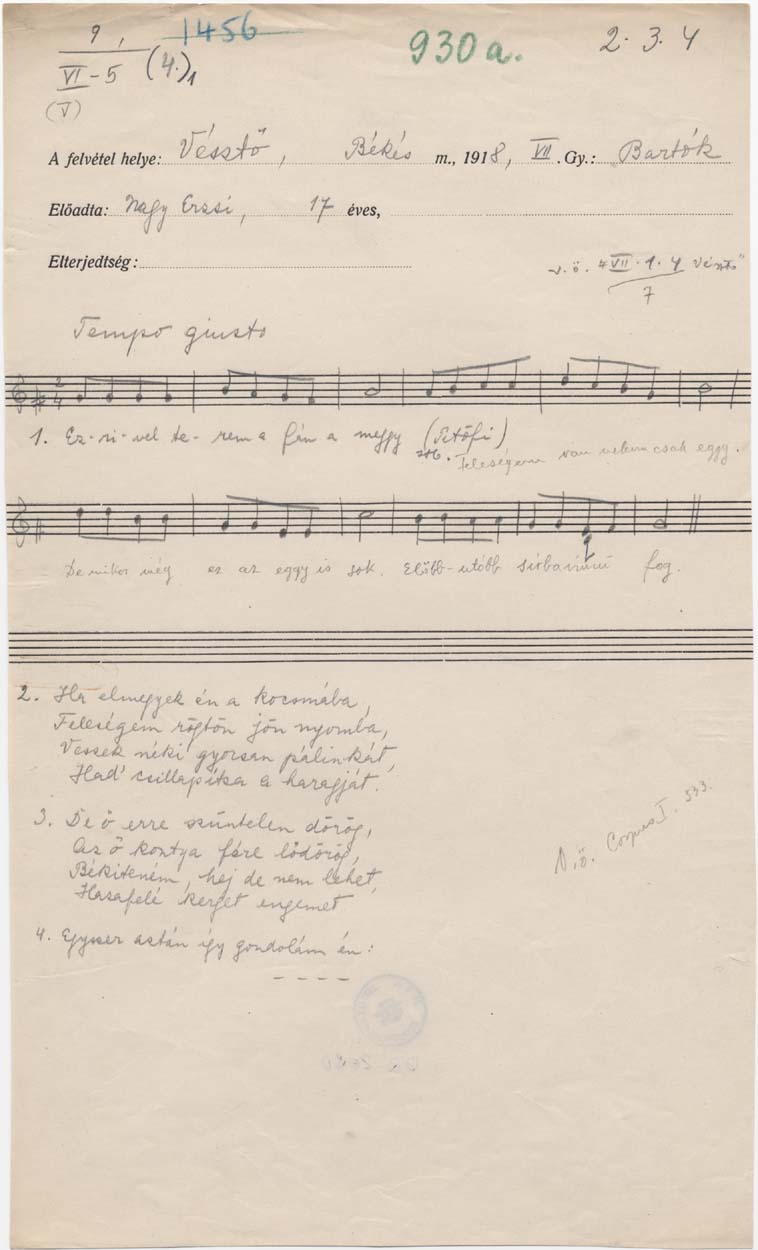 9, 1456 930a. 2·3·4
VI-5 (4.)1
(V)
A felvétel helye: Vésztő, Békés m., 1918, VII. Gy.: Bartók
Előadta: Nagy Erzsi, 17 éves,
Elterjedtség:
v.ö. VII·1·4 Vésztő
7
Tempo giusto
2
4
1. Ez-ri-vel te-rem a fán a meggy (Petőfi)
stb. Feleségem van nekem csak eggy.
De mikor még ez az eggy is sok. Előbb-utóbb sírba fog.
2. Ha elmegyek én a kocsmába,
Feleségem rögtön jön nyomba,
Veszek néki gyorsan pálinkát,
Had' csillapítsa a haragját.
3. De ő erre szüntelen dörög,
Az ő kontya félre lődörög,
Békíteném, hej de nem lehet,
Hazafelé kerget engemet
V.ö. Corpus I. 533.
4. Egyszer aztán így gondolám én:
----